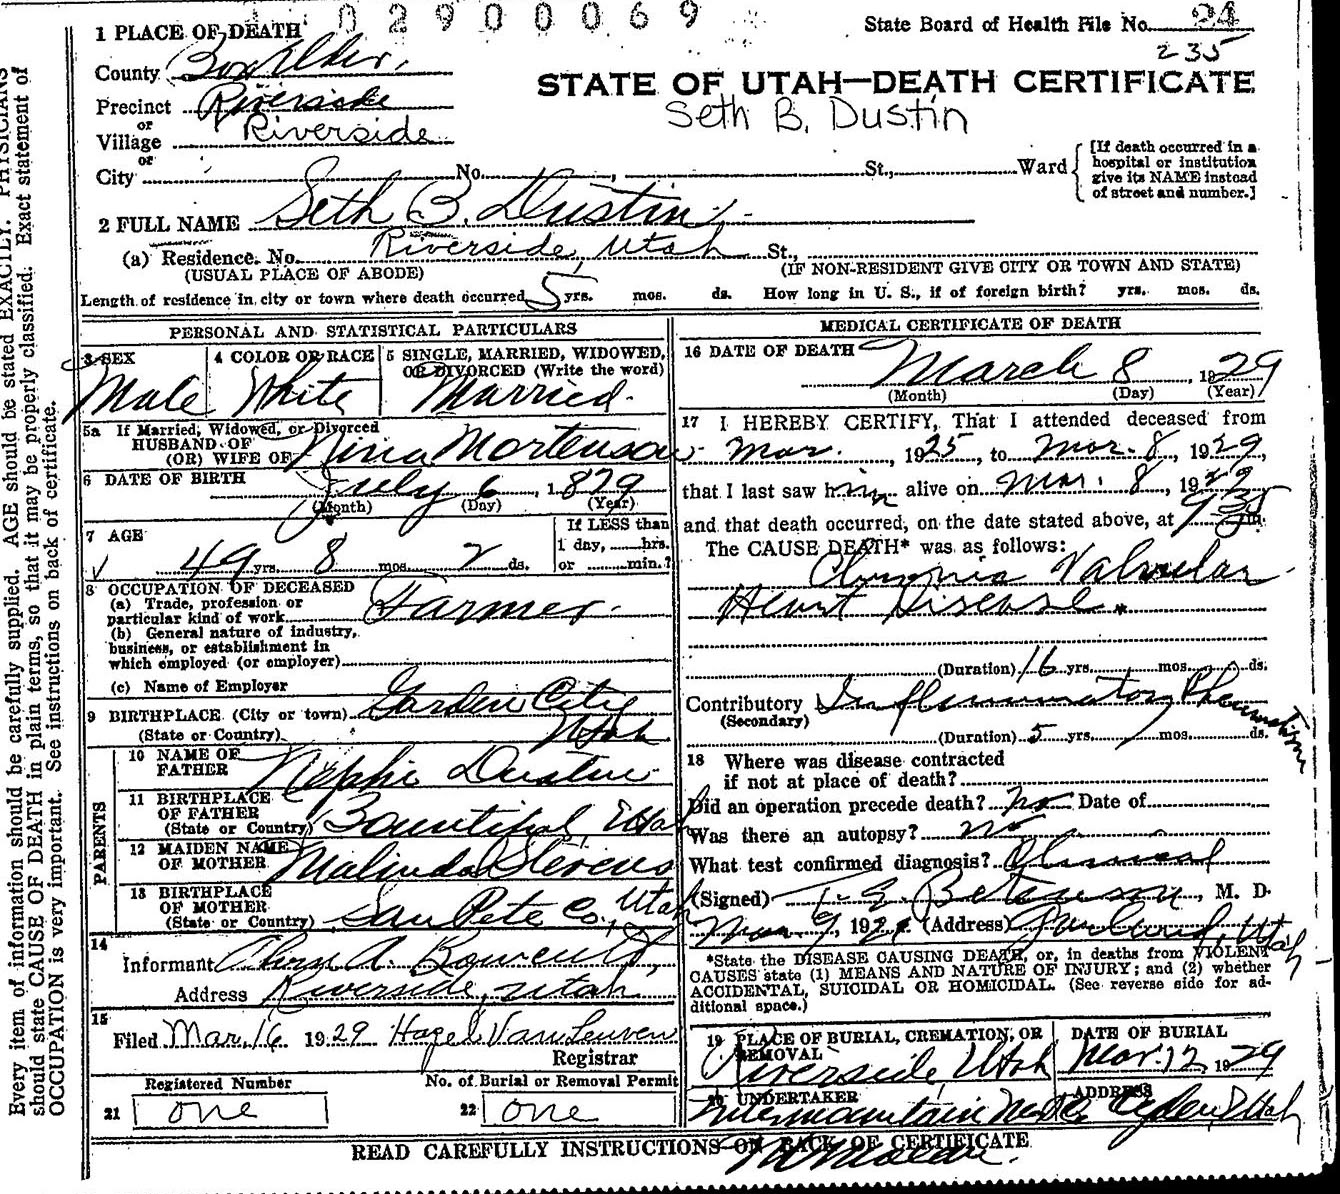 02900069
State Board of Health File No. 24
235
1 PLACE OF DEATH
County Box Elder.
Precinct Riverside
or
Village Riverside
or
City No. , St., Ward
[If death occurred in a hospital or institution give its NAME instead of street and number.]
STATE OF UTAH—DEATH CERTIFICATE
Seth B. Dustin
2 FULL NAME Seth B. Dustin
(a) Residence. No. Riverside, Utah St.,
(USUAL PLACE OF ABODE) (IF NON-RESIDENT GIVE CITY OR TOWN AND STATE)
Length of residence in city or town where death occurred 5 yrs. mos. ds. How long in U. S., if of foreign birth? yrs. mos. ds.
PERSONAL AND STATISTICAL PARTICULARS
3 SEX
Male
4 COLOR OR RACE
White
5 SINGLE, MARRIED, WIDOWED,
OR DIVORCED (Write the word)
Married.
5a If Married, Widowed, or Divorced
HUSBAND OF
(OR) WIFE OF Nina Mortenson
6 DATE OF BIRTH July 6, 1879
(Month) (Day) (Year)
7 AGE
49 yrs. 8 mos. 2 ds.
If LESS than
1 day, hrs.
or min.?
8 OCCUPATION OF DECEASED
(a) Trade, profession or
particular kind of work Farmer.
(b) General nature of industry,
business, or establishment in
which employed (or employer)
(c) Name of Employer
9 BIRTHPLACE (City or town) Garden City
(State or Country) Utah
PARENTS
10 NAME OF
FATHER Nephi Dustin
11 BIRTHPLACE
OF FATHER
(State or Country) Bountiful, Utah
12 MAIDEN NAME
OF MOTHER Malinda Stevens
13 BIRTHPLACE
OF MOTHER
(State or Country) San Pete Co., Utah
14
Informant A.
Address Riverside, Utah
15
Filed Mar. 16 1929 Hazel Van Leuven
Registrar
Registered Number
21 one
No. of Burial or Removal Permit
22 one
MEDICAL CERTIFICATE OF DEATH
16 DATE OF DEATH March 8, 1929
(Month) (Day) (Year)
17 I HEREBY CERTIFY, That I attended deceased from
Mar. , 1925, to Mar. 8, 1929,
that I last saw him alive on Mar. 8, 1929
and that death occurred, on the date stated above, at 9 35 m.
The CAUSE DEATH* was as follows:
Chronic Valvular
Heart Disease*
(Duration) 16 yrs. mos. ds.
Contributory Inflammatory Rheumatism
(Secondary)
(Duration) 5 yrs. mos. ds.
18 Where was disease contracted
if not at place of death?
Did an operation precede death? no Date of
Was there an autopsy? no
What test confirmed diagnosis? Clinical
(Signed) , M. D.
Mar 9, 1929 (Address) Garland, Utah
*State the DISEASE CAUSING DEATH, or, in deaths from VIOLENT
CAUSES state (1) MEANS AND NATURE OF INJURY; and (2) whether
ACCIDENTAL, SUICIDAL OR HOMICIDAL. (See reverse side for ad-
ditional space.)
19 PLACE OF BURIAL, CREMATION, OR
REMOVAL
Riverside, Utah
DATE OF BURIAL
Mar. 12, 1929
20 UNDERTAKER
Intermountain
ADDRESS
Ogden, Utah
READ CAREFULLY INSTRUCTIONS ON BACK OF CERTIFICATE
Every item of information should be carefully supplied. AGE should be stated EXACTLY. PHYSICIANS
should state CAUSE OF DEATH in plain terms, so that it may be properly classified. Exact statement of
OCCUPATION is very important. See instructions on back of certificate.